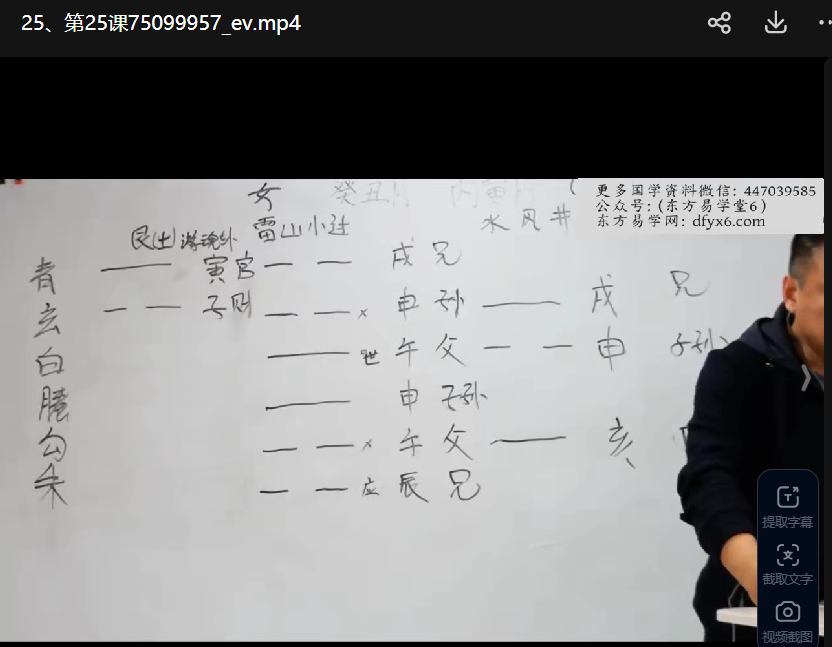 25、第25课75099957_ev.mp4
更多国学资料微信: 447039585
公众号:(东方易学堂6)
东方易学网: dfyx6.com
女 癸丑月 丙寅
艮(土)游魂外 雷山小过 水风井
青 寅官 戌 兄
玄 子财 × 申 孙 戌 兄
白 世 午 父 申 子孙
螣 申 子孙
勾 × 午 父 亥
朱 应 辰 兄
提取字幕
截取文字
视频截图